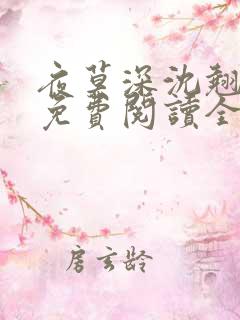 夜莫深沈翹
免費閱讀全
房玄齡